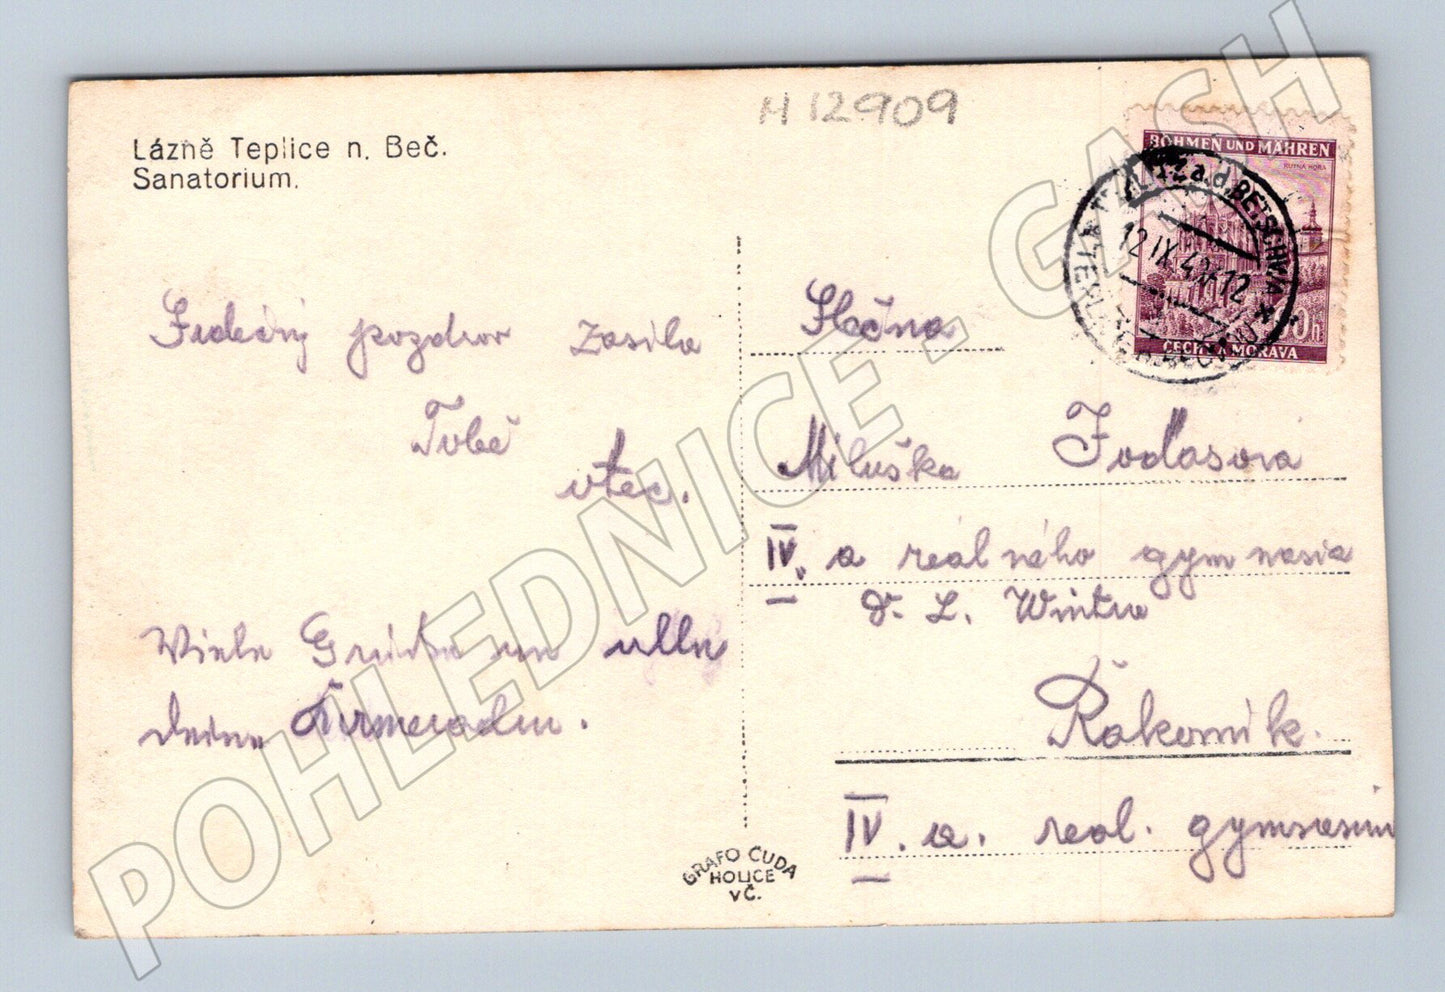 H 12909
Lázně Teplice n. Beč.
Sanatorium.
BÖHMEN UND MÄHREN
KUTNÁ HORA
ČECHY A MORAVA
a.d. BETSCHWA
12 IX 42-12
Srdečný pozdrav zasílá
Tobě
otec.
Viele Grüße
Slečna
Miluška
IV. a reálného gymnasia
dr. L. Wintra
Rakovník.
IV. a. real. gymnasium
GRAFO ČUDA
HOLICE
V Č.
POHLEDNICE - GASH